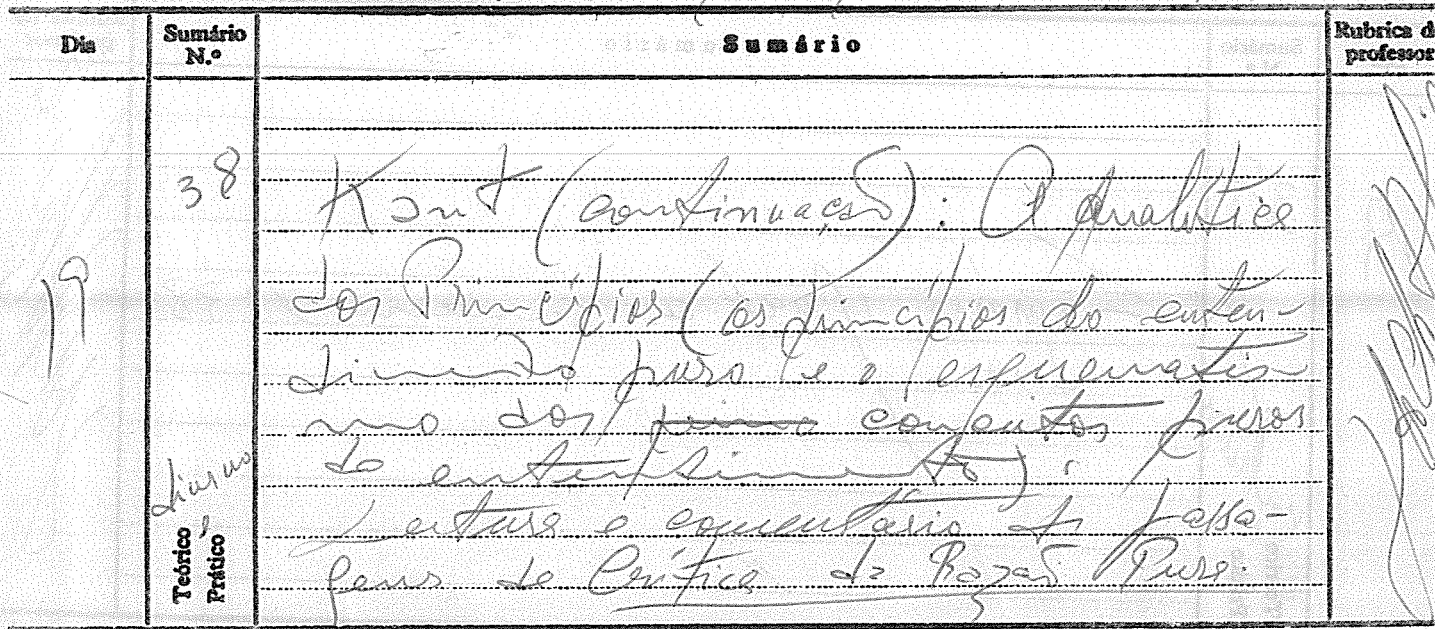 Dia
Sumário
N.º
Sumário
Rubrica d
professor
19
38
diurno
Teórico e
Prático
Kant (continuação): A Analítica
dos Princípios (os princípios do enten-
dimento puro e o esquematis-
mo dos conceitos puros
do entendimento).
Leitura e comentário de passa-
gens da Crítica da Razão Pura.